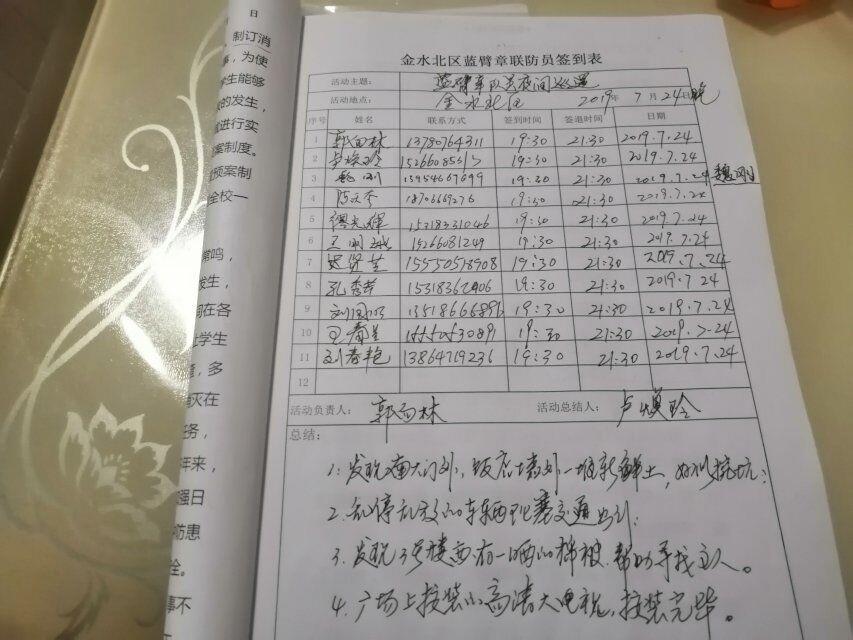 日
制订消
事，为使
学生能够
的发生，
进行实
案制度。
预案制
全校一
常鸣，
发生，
在各
学生
，多
灭在
务，
年来，
强日
防患
全。
事不
金水北区蓝臂章联防员签到表
活动主题： 蓝臂章队员夜间巡逻
活动地点： 金水北区 2019年7月24日晚
序号 姓名 联系方式 签到时间 签退时间 日期
1 郭向林 13780764311 19:30 21:30 2019.7.24
2 卢焕玲 19:30 21:30 2019.7.24
3 魏刚 13954667699 19:30 21:30 2019.7.24 魏刚
4 19:30 21:30 2019.7.24
5 15318331046 19:30 21:30 2019.7.24
6 王明 15266081249 19:30 21:30 2019.7.24
7 15550518908 19:30 21:30 2019.7.24
8 孔秀萍 15318362906 19:30 21:30 2019.7.24
9 13518666896 19:30 21:30 2019.7.24
10 王 19:30 21:30 2019.7.24
11 刘春艳 13864719236 19:30 21:30 2019.7.24
12
活动负责人： 郭向林 活动总结人： 卢焕玲
总结：
1：发现南大门外，饭店墙外一堆新鲜土，好似挖坑；
2.乱停乱放的车辆
3.发现3号楼西有一晒的棉被，帮助寻找主人。
4.广场上按装的高清大电视，按装完毕。